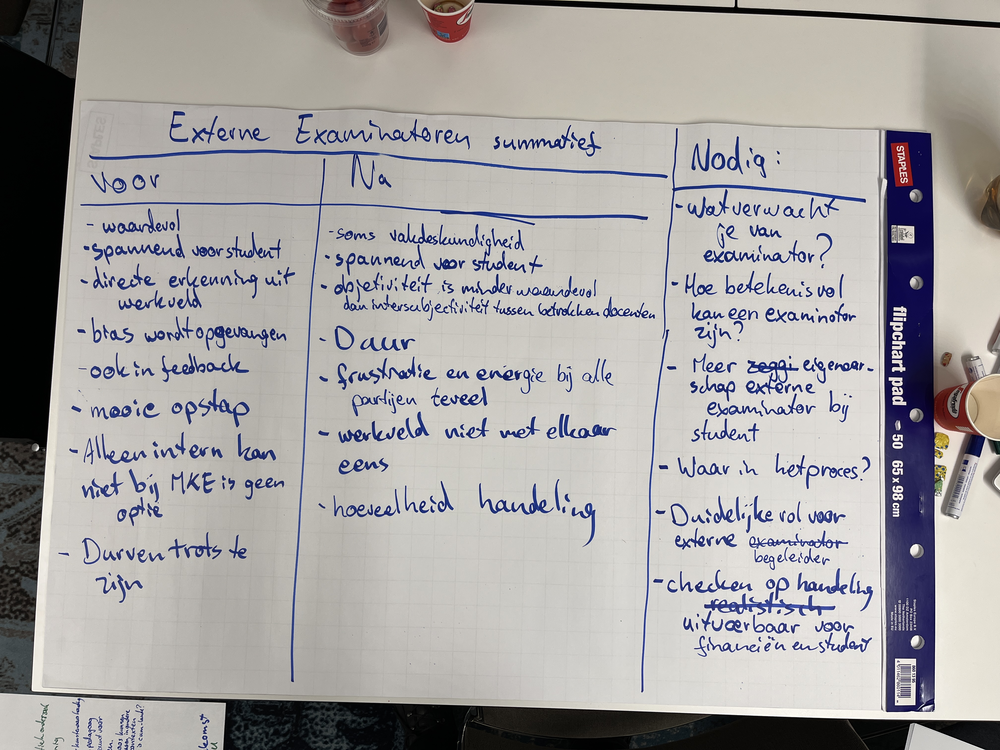 Externe Examinatoren summatief
voor
- waardevol
- spannend voor student
- directe erkenning uit
werkveld
- bias wordt opgevangen
- ook in feedback
- mooie opstap
- Alleen intern kan
niet bij MKE is geen
optie
- Durven trots te
zijn
Na
- soms vakdeskundigheid
- spannend voor student
- objetiviteit is minder waardevol
dan intersubjectiviteit tussen betrokken docenten
- Duur
- frustratie en energie bij alle
partijen teveel
- werkveld niet met elkaar
eens
- hoeveelheid handeling
Nodig:
- Wat verwacht
je van
examinator?
- Hoe betekenisvol
kan een examinator
zijn?
- Meer eigenaar-
schap externe
examinator bij
student
- Waar in het proces?
- Duidelijke rol voor
externe examinator
begeleider
- checken op handeling
realistisch
uitvoerbaar voor
financiën en student
STAPLES
flipchart pad
50 65 x 98 cm